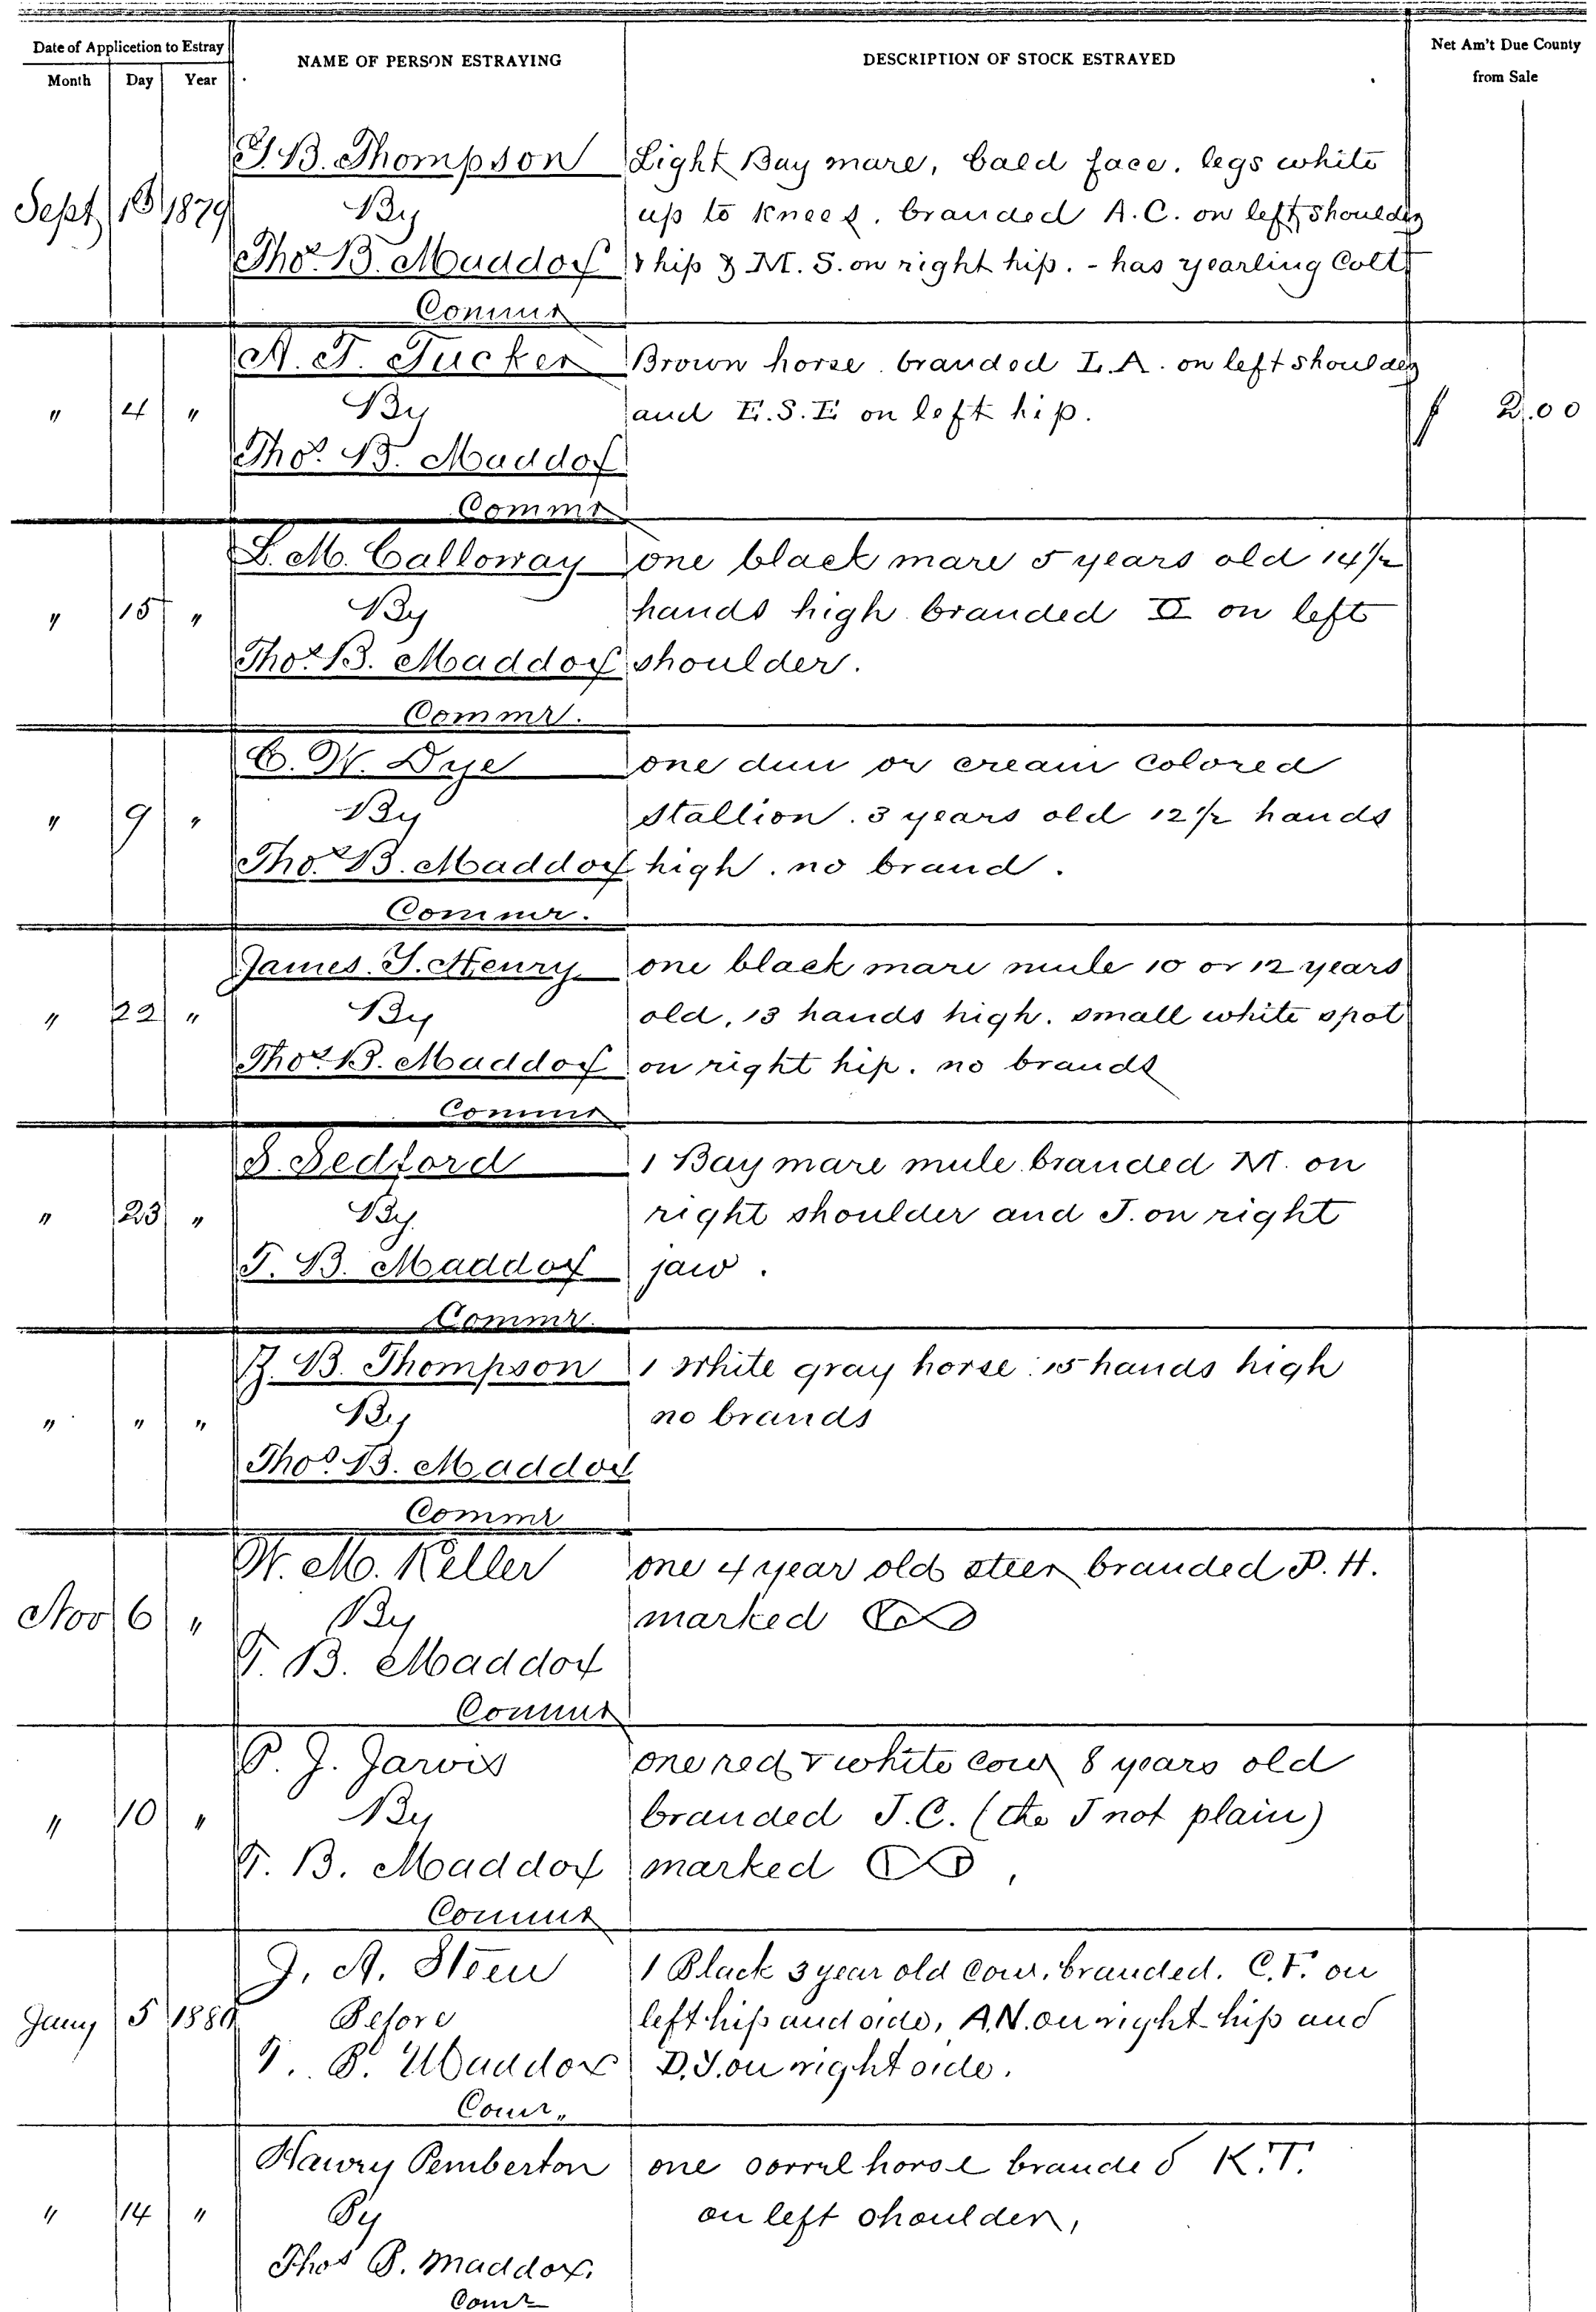 Date of Applicetion to Estray
Month Day Year
NAME OF PERSON ESTRAYING
DESCRIPTION OF STOCK ESTRAYED
Net Am't Due County
from Sale
Sept 1879
B. Thompson
By
Thos. B. Maddox
Commr
Light Bay mare, bald face. legs white
up to knees. branded A. C. on left shoulder
& hip & M. S. on right hip. - has yearling Colt
" 4 "
A. T. Tucker
By
Thos. B. Maddox
Commr
Brown horse. branded L. A. on left shoulder
and E. S. E on left hip.
$ 2.00
" 15 "
L. M. Calloway
By
Thos. B. Maddox
Commr.
one black mare 5 years old 14½
hands high branded on left
shoulder.
" 9 "
C. W. Dye
By
Thos. B. Maddox
Commr.
one dun or cream colored
Stallion. 3 years old 12½ hands
high. no brand.
" 22 "
James. T. Henry
By
Thos. B. Maddox
Commr
one black mare mule 10 or 12 years
old, 13 hands high. small white spot
on right hip. no brands
" 23 "
S. Bedford
By.
T. B. Maddox
Commr.
1 Bay mare mule branded M. on
right shoulder and J. on right
jaw.
" " "
B. Thompson
By
Thos. B. Maddox
Commr
1 White gray horse. 15 hands high
no brands
Nov 6 "
W. M. Keller
By
T. B. Maddox
Commr
one 4 year old steer branded P. H.
marked
" 10 "
P. J. Jarvis
By
T. B. Maddox
Commr
one red & white cow 8 years old
branded J. C. (the J not plain)
marked
Jany 5 1880
J. A. Steen
Before
T. B. Maddox
Comr.
1 Black 3 year old cow. branded. C. F. on
left hip and side, A. N. on right hip and
D. J. on right side.
" 14 "
Hawry Pemberton
By
Thos B. Maddox.
Comr
one sorrel horse branded K. T.
on left shoulder,